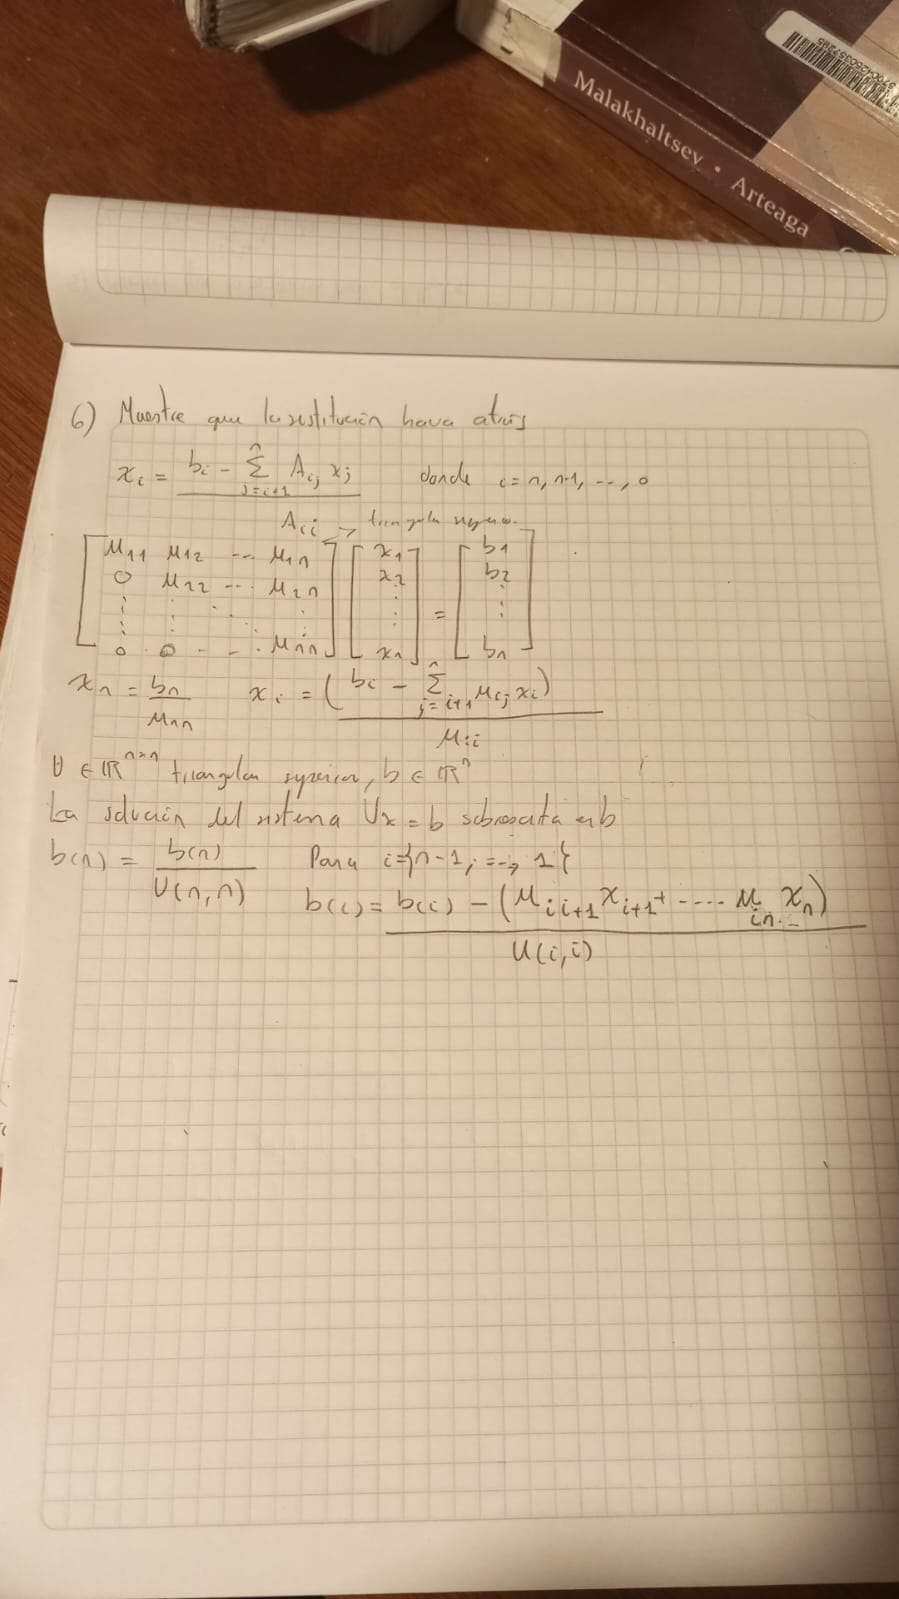 Malakhaltsev • Arteaga
6) Muestre que la sustitución hacia atrás
x_i = (b_i - Σ_{j=i+1}^{n} A_{ij} x_j) / A_{ii} donde i = n, n-1, ..., 0
→ triangular superior.
[μ_{11} μ_{12} ... μ_{1n}] [x_1] [b_1]
[0 μ_{22} ... μ_{2n}] [x_2] [b_2]
[⋮ ⋮ ⋱ ⋮] [⋮] = [⋮]
[0 0 - - . μ_{nn}] [x_n] [b_n]
x_n = b_n / μ_{nn} x_i = (b_i - Σ_{j=i+1}^{n} μ_{ij} x_i) / μ_{ii}
U ∈ ℝ^{n×n} triangular superior, b ∈ ℝ^n
La solución del sistema Ux = b sobrescrita en b
b(n) = b(n) / U(n,n) Para i={n-1, ---, 1}
b(i) = b(i) - (μ_{ii+1} x_{i+1} + ---- μ_{in} x_n) / U(i,i)